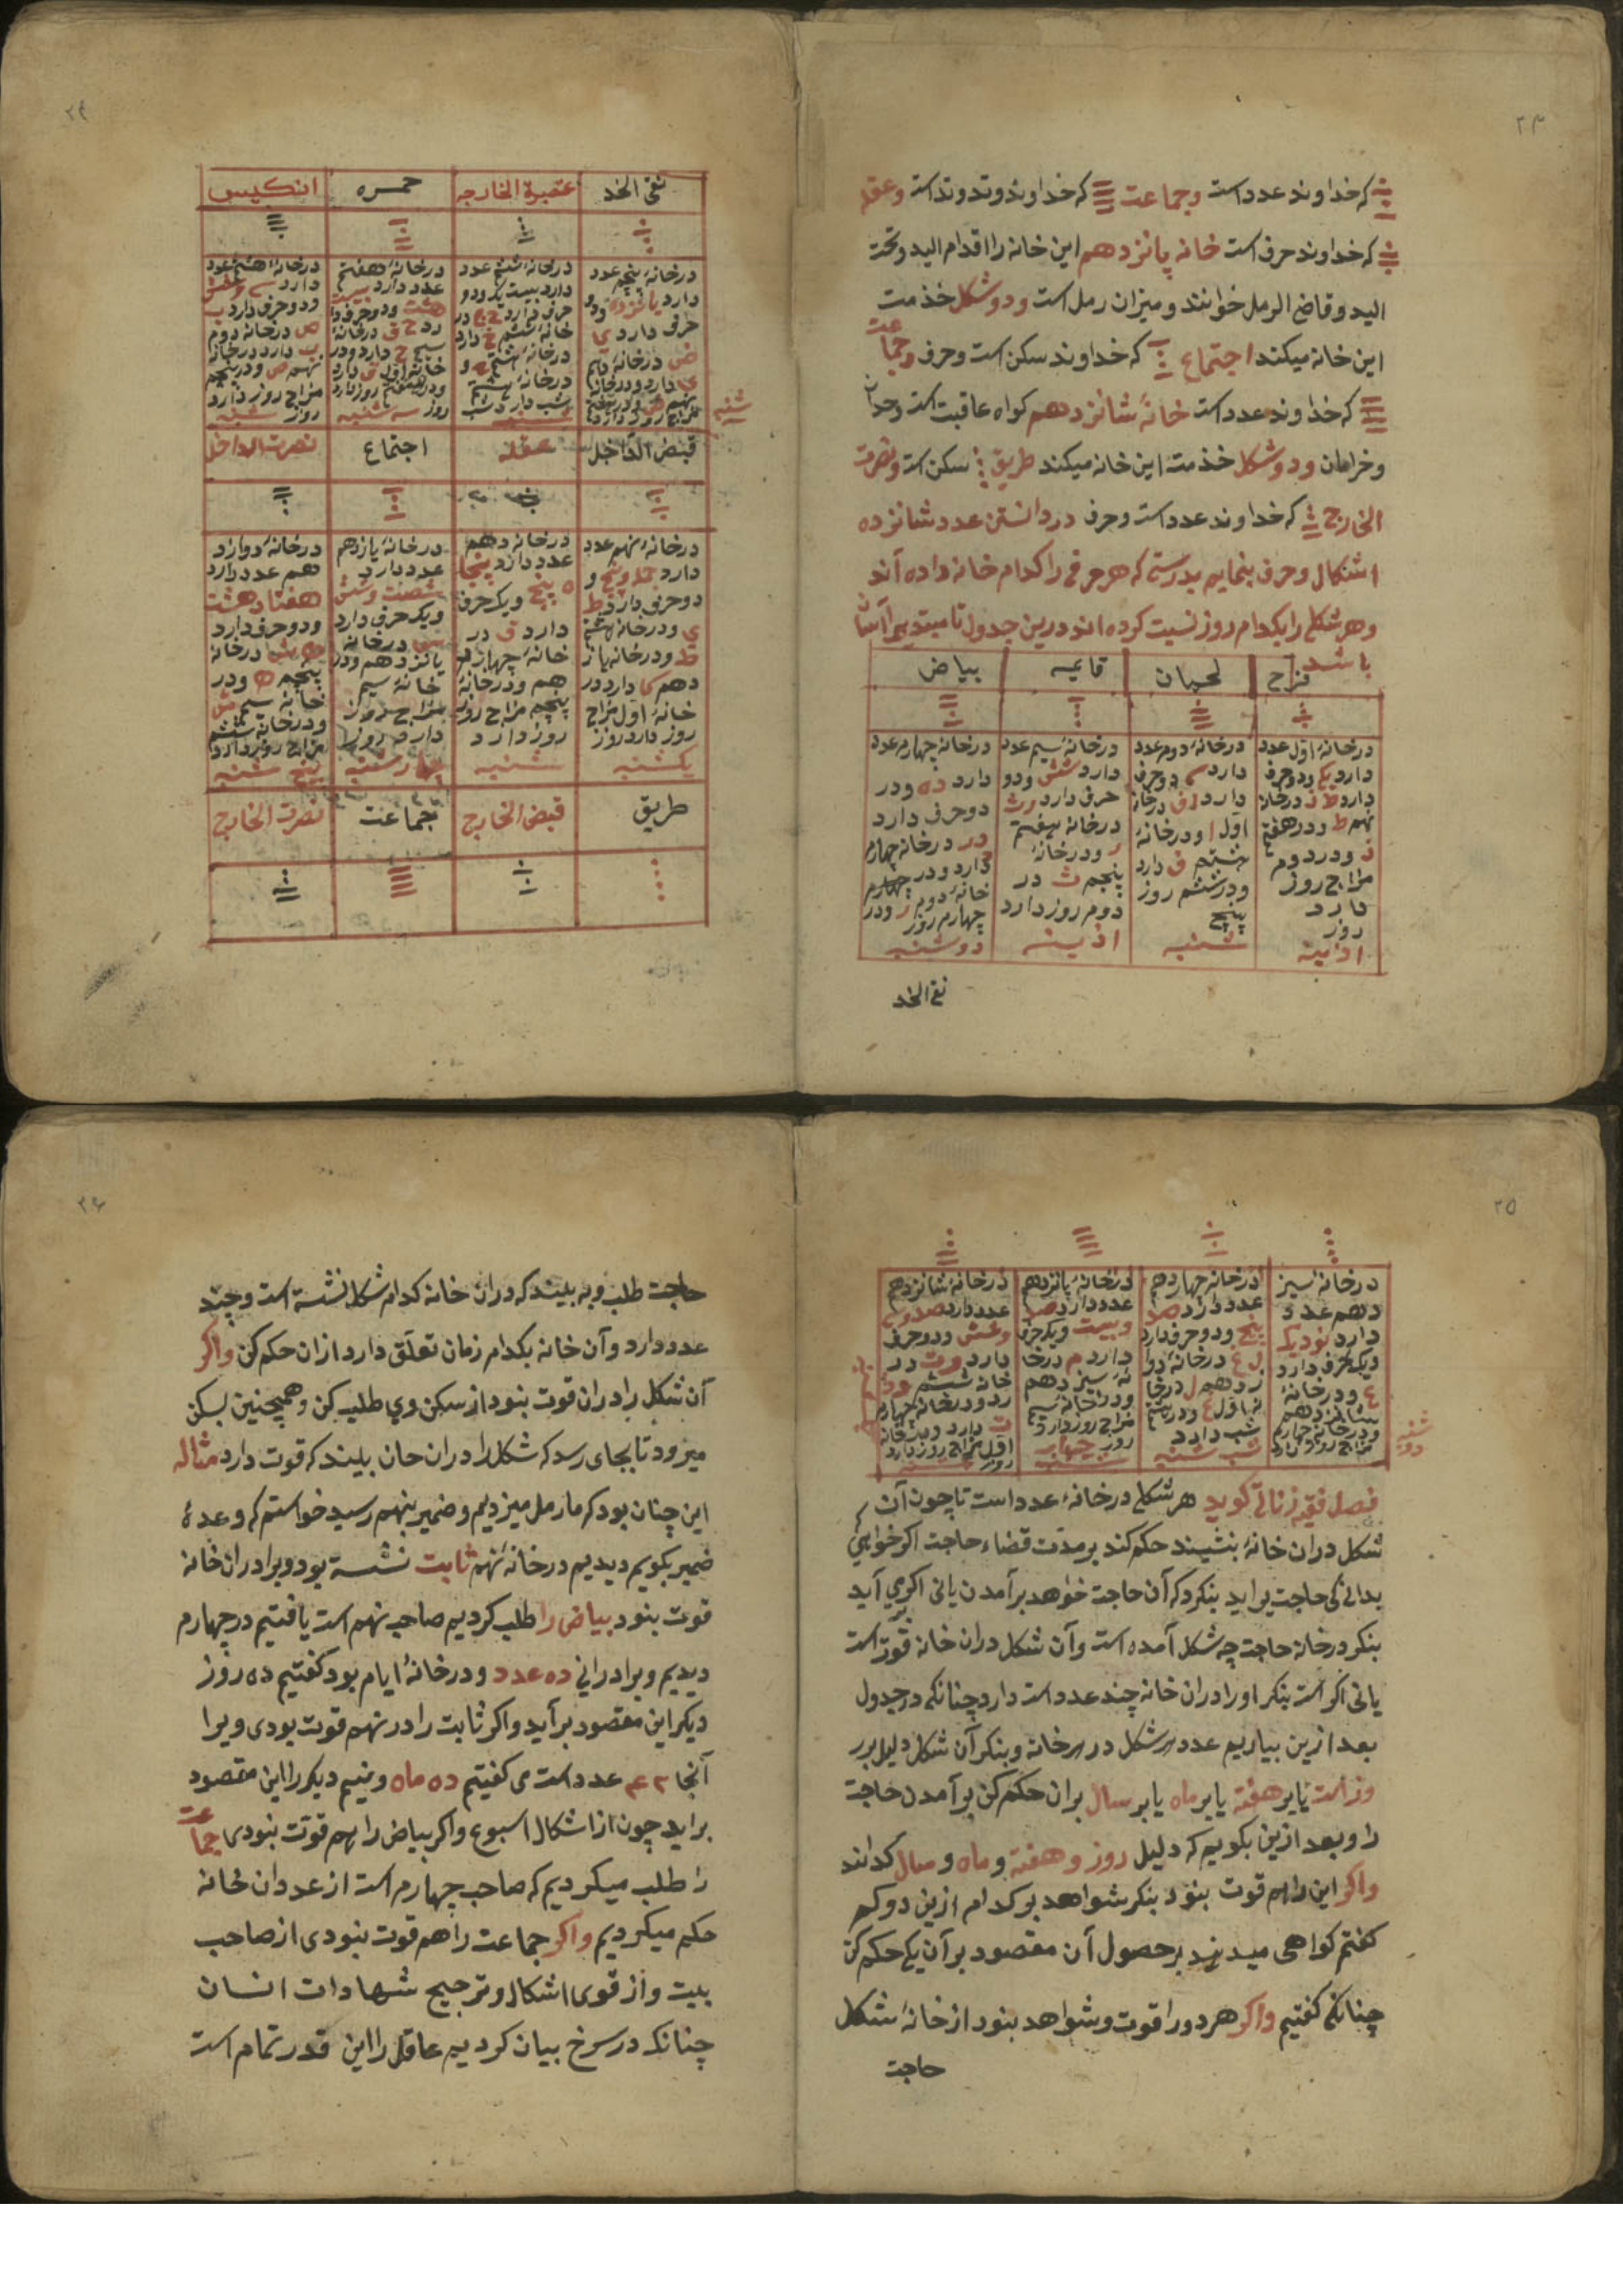 ۲۳
که خداوند عدد است وجماعت که خداوند وتد وتد است وعقله
که خداوند حرف است خانه پانزدهم این خانه را اقدام الید وتحت
الید وقاضی الرمل خوانند ومیزان رمل است ودو شکل خذمت
این خانه میکند اجتماع که خداوند سکن است وحرف وجماعت
که خداوند عدد است خانهٔ شانزدهم کواه عاقبت است
وخرامان ودو شکل خذمت این خانه میکند طریق سکن است ونصرت
الخارج که خداوند عدد است وحرف در دانستن عدد شانزده
اشکال وحرف بنمایم بدرستی که هر حرفی را کدام خانه داده اند
وهر شکلی را بکدام روز نسبت کرده اند درین جدول تا مبتدی را آسان
باشد
فرح لحیان قایمه بیاض
درخانهٔ اول عدد
دارد یکی ودو حرف
دارد ط ذ درخانهٔ
نهم ط ودر هفتم
ذ ودر دوم
مزاج روز
دارد
روز
ادینه
درخانهٔ دوم عدد
دارد سه دو حرف
دارد ا ف درخانهٔ
اول ا ودرخانهٔ
هشتم ف دارد
ودر ششم روز
پنج
شنبه
درخانهٔ سیم عدد
دارد شش ودو
حرف دارد رث
درخانهٔ هفتم
ر ودرخانهٔ
پنجم ث در
دوم روز دارد
ادینه
درخانهٔ چهارم عدد
دارد ده ودر
دو حرف دارد
در درخانه چهارم
د دارد ودر چهارم
خانهٔ دوم ر ودر
چهارم روز
دو شنبه
نقی الخد
۲۴
نقی الخد عتبة الخارجه حمره انکیس
درخانهٔ پنجم عدد
دارد پانزده ودو
حرف دارد ی
ض درخانهٔ دهم
ی دارد ودرخانهٔ
شنبه
درخانهٔ ششم عدد
دارد بیست یک ودو
حرف دارد خ ج در
خانهٔ ششم خ دارد
درخانهٔ هشتم ج و
درخانهٔ بیستم
شب دارد شب
درخانهٔ هفتم
عدد دارد بیست
هشت ودو حرف دا
رد ح ق درخانهٔ
سیم ح دارد ودر
خانهٔ اول ق دارد
ودر هفتم روز دارد
روز سه شنبه
درخانهٔ هشتم عدد
دارد سی وشش
ودو حرف دارد ب
ص درخانهٔ دوم
ب دارد درخانهٔ
نهم ص ودر پنجم
مزاج روز دارد
روز شنبه
قبض الداخل عقله اجتماع نصرت الداخل
درخانهٔ نهم عدد
دارد چهل وپنج و
دو حرف دارد ط
ی ودرخانه هشتم
ط ودرخانه یاز
دهم ک دارد در
خانهٔ اول مزاج
روز دارد روز
یکشنبه
درخانه دهم
عدد دارد پنجا
ه پنج ویک حرف
دارد ق در
خانهٔ چهارد
هم ودرخانهٔ
پنجم مزاج روز
روز دارد
شنبه
درخانهٔ یازدهم
عدد دارد
شصت وشش
ویک حرف دارد
س درخانه
پانزدهم ودر
خانهٔ سیم
مزاج روز
دارد روز
چهارشنبه
درخانهٔ دوازد
هم عدد دارد
هفتاد هشت
ودو حرف دارد
ه ش درخانهٔ
پنجم ه ودر
خانهٔ سیم ش
ودرخانهٔ ششم
مزاج روز دارد
پنج شنبه
طریق قبض الخارج جماعت نصرت الخارج
۲۵
درخانهٔ سیز
دهم عدد
دارد نود یک
ویک حرف دارد
ع ودرخانهٔ
شانزدهم
ودرخانهٔ چهارم
مزاج روز دارد
شنبه
دو
درخانهٔ چهاردهم
عدد دارد صد
پنج ودو حرف دارد
ل غ درخانهٔ دوا
زدهم ل درخا
نهٔ اول غ ودر بیستم
شب دارد
شب شنبه
درخانهٔ پانزدهم
عدد دارد صد
وبیست ویک حرف
دارد م درخا
نهٔ سیزدهم
ودرخانهٔ سیم
مزاج روز دارد
روز چهار
شنبه
درخانهٔ شانزدهم
عدد دارد صد وسی
وشش ودو حرف
دارد وت در
خانهٔ ششم و دا
رد ودرخانهٔ چهارم
ت دارد ودرخانهٔ
اول مزاج روز دارد
روز
فصل فقیه زناتی کوید هر شکلی درخانهٔ عدد است تا چون آن
شکل دران خانهٔ بنشیند حکم کند بر مدت قضاء حاجت اکر خواهی
بدانی کی حاجت براید بنکر که آن حاجت خواهد برآمدن یانی اکر می آید
بنکر درخانه حاجت چه شکل آمده است وآن شکل دران خانه قوت است
یانی اکر است بنکر اورا دران خانه چند عدد است دارد چنانکه در جدول
بعد ازین بیاریم عدد هر شکل در هر خانه وبنکر آن شکل دلیل بر
وز است یا بر هفته یا بر ماه یا بر سال بران حکم کن برآمدن حاجت
را وبعد ازین بکوییم که دلیل روز وهفته وماه وسال کدامند
واکر این را هم قوت بنود بنکر شواهد بر کدام ازین دو کم
کفتم کواهی میدهند بر حصول آن مقصود بر آن یکی حکم کن
چنانکه کفتیم واکر هر دو را قوت وشواهد بنود از خانهٔ شکل
حاجت
۲۶
حاجت طلب وبه بیند که دران خانه کدام شکل نشسته است وچند
عدد دارد وآن خانه بکدام زمان تعلق دارد ازان حکم کن واکر
آن شکل را دران قوت بنود از سکن وی طلب کن وهمچنین بسکن
میرود تا بجای رسد که شکل را دران خان بیند که قوت دارد مثاله
این چنان بود که ما رمل میزدیم وضمیر بنهم رسید خواستم که وعدهٔ
ضمیر بکویم دیدیم درخانهٔ نهم ثابت نشسته بود وویرا دران خانه
قوت بنود بیاض را طلب کردیم صاحب نهم است یافتیم در چهارم
دیدیم ویرا درانی ده عدد ودرخانهٔ ایام بود کفتیم ده روز
دیکر این مقصود برآید واکر ثابت را در نهم قوت بودی ویرا
آنجا عدد است می کفتیم ده ماه ونیم دیکر را این مقصود
براید چون از اشکال اسبوع واکر بیاض را هم قوت بنودی جماعت
را طلب میکردیم که صاحب چهارم است از عدد ان خانه
حکم میکردیم واکر جماعت را هم قوت بنودی از صاحب
بیت واز قوی اشکال وترجیح شهادات انسان
چنانکه در سرخ بیان کردیم عاقل را این قدر تمام است